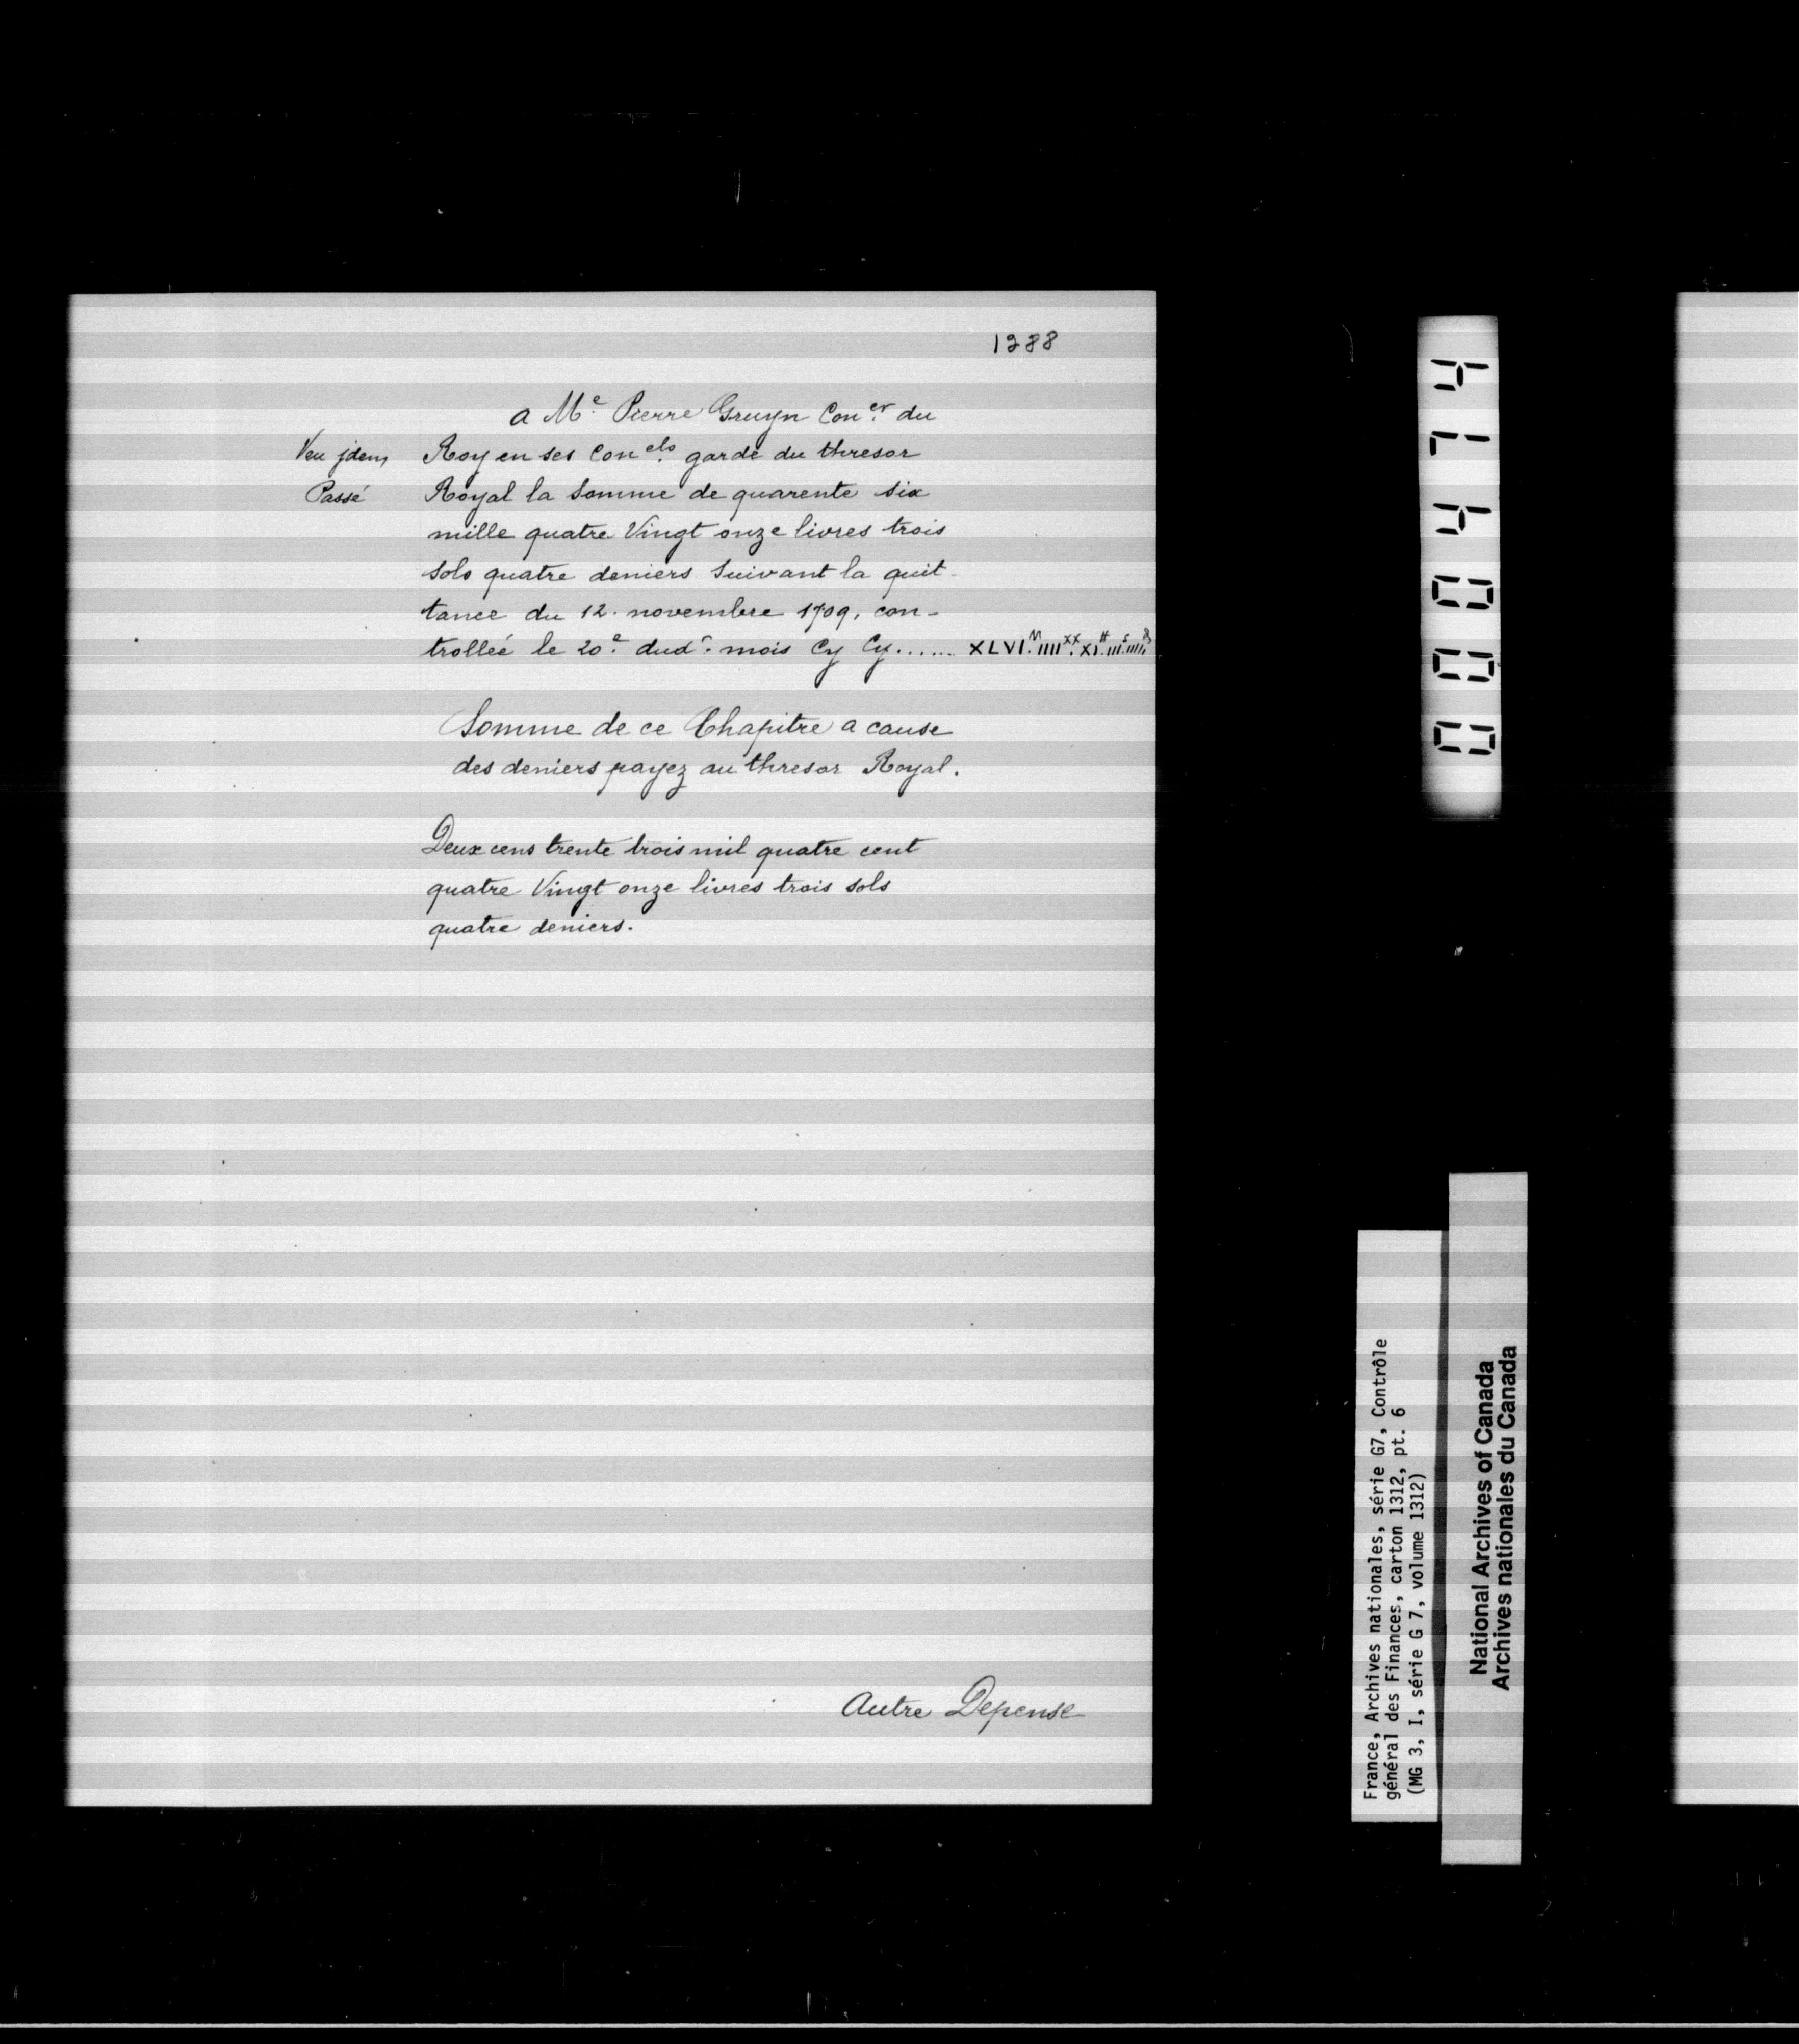 1288
a Me. Pierre Gruyn Coner. du
Veu jdem Roy en ses Conels. garde du thresor
Passé Royal la Somme de quarente six
mille quatre Vingt onze livres trois
sols quatre deniers Suivant la quit-
tance du 12. novembre 1709. con-
trollée le 20e. dudt. mois Cy Cy...... XLVI.M IIII.XX XI.# III.S IIII.D
Somme de ce Chapitre a cause
des deniers payez au thresor Royal.
Deux cens trente trois mil quatre cent
quatre Vingt onze livres trois sols
quatre deniers.
Autre Depense
000414
France, Archives nationales, série G7, Contrôle
général des Finances, carton 1312, pt. 6
(MG 3, I, série G 7, volume 1312)
National Archives of Canada
Archives nationales du Canada